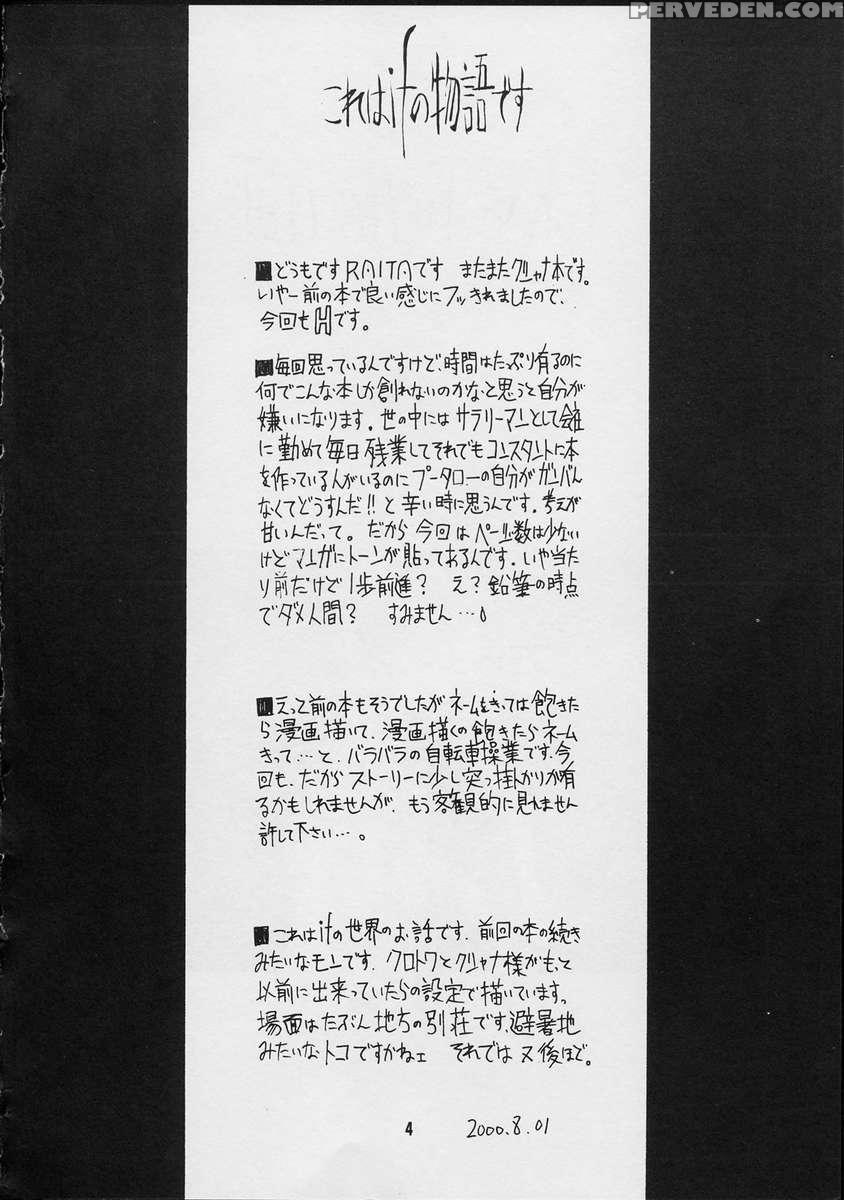 PERVEDEN.COM
これはifの物語です
■どうもですRAITAです またまたクシャナ本です。
いやー前の本で良い感じにフッきれましたので、
今回もHです。
■毎回思っているんですけど、時間はたっぷり有るのに
何でこんな本しか創れないのかなと思うと自分が
嫌いになります。世の中にはサラリーマンとして会社
に勤めて毎日残業してそれでもコンスタントに本
を作っている人がいるのにプータローの自分がガンバん
なくてどうすんだ!!と辛い時に思うんです。考えが
甘いんだって。だから今回はページ数は少ない
けどマンガにトーンが貼ってあるんです。いや当た
り前だけど1歩前進? え?鉛筆の時点
でダメ人間? すみません…。
■えって前の本もそうでしたがネームきっては飽きた
ら漫画描いて、漫画描くの飽きたらネーム
きって…と、バラバラの自転車操業です。今
回も、だからストーリーに少し突っ掛かりが有
るかもしれませんが、もう客観的に見れません
許して下さい…。
■これはifの世界のお話です。前回の本の続き
みたいなモンです。クロトワとクシャナ様がもっと
以前に出来っていたらの設定で描いています。
場面はたぶん地方の別荘です。避暑地
みたいなトコですかねェ それでは又後ほど。
4 2000.8.01